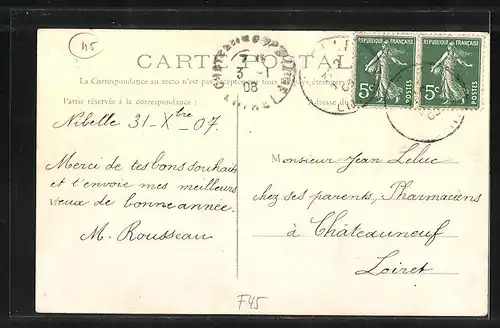 45
CARTE POSTALE
La Correspondance au recto n'est pas acceptée par tous les pays étrangers
Partie réservée à la correspondance :
Adresse du
3 - 1
08
LOIRET
RÉPUBLIQUE FRANÇAISE
5c
POSTES
RÉPUBLIQUE FRANÇAISE
5c
POSTES
Nibelle 31-Xbre-07.
Merci de tes bons souhaits
et t'envoie mes meilleurs
vœux de bonne année.
M. Rousseau
Monsieur Jean Leluc
chez ses parents, Pharmaciens
à Châteauneuf
Loiret
F45